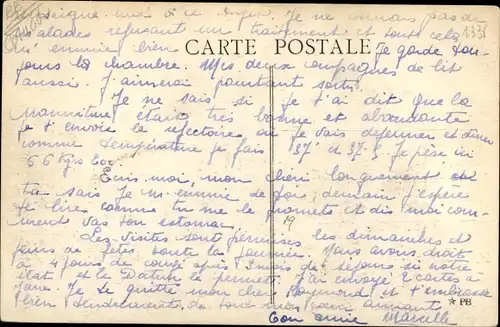 renseigne moi à ce sujet. Je ne connais pas de
malades refusant un traitement et tout cela
m'ennuie bien
CARTE POSTALE
Je garde tou-
jours la chambre. Mes deux compagnes de lit
aussi. J'aimerai pourtant sortir
Je ne sais si je t'ai dit que la
nourriture était très bonne et abondante
je t'envoie le refectoire où je vais dejeuner et diner
comme température je fais 37° et 37°5 Je pèse ici
66 Kgrs 600.
Ecris moi, mon chéri longuement
tu sais Je m'ennuie de toi, demain j'espère
te lire comme tu me le promets et dis moi com-
ment vas ton estomac.
Les visites sont permises les dimanches et
jours de fêtes toute la journée. Nous avons droit
à 4 jours de congé après 3 mois de séjour si notre
état et le Docteur le permet. J'ai envoyé 2 cartes à
Jane. Je te quitte mon cher Raymond et t'embrasse
bien tendrement de tout mon cœur aimant
Ton amie Marcelle
★ PB